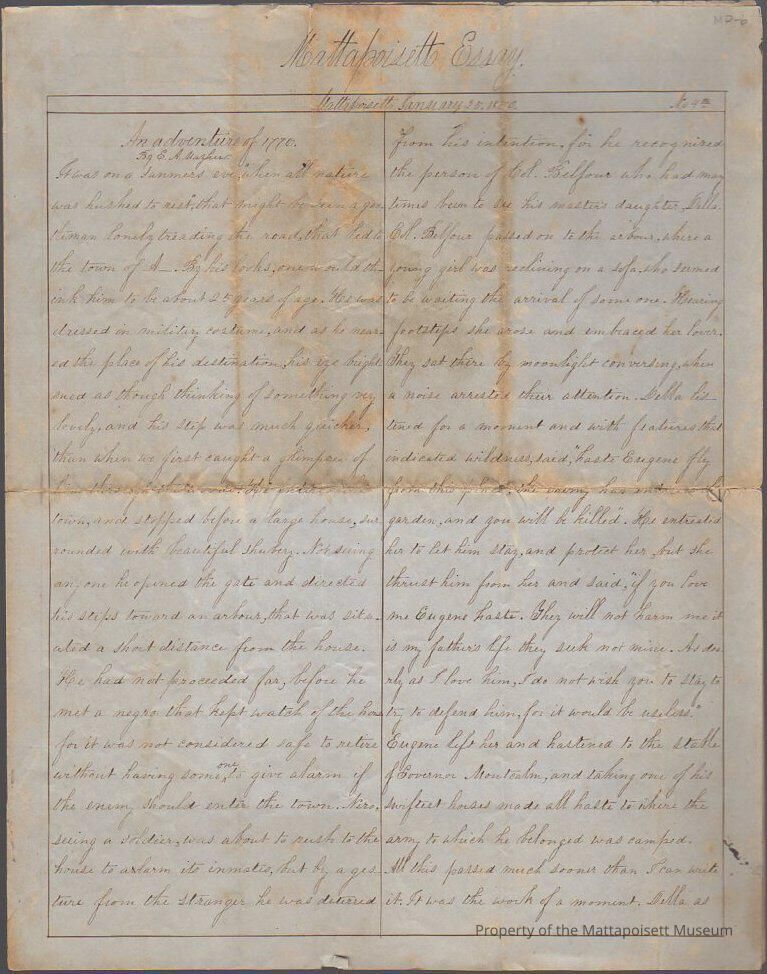 MP-6
Mattapoisett Essay.
Mattapoisett January 20, No 4th
An adventure of 1770.
By E. A.
It was on a Summers eve, "when all nature
was hushed to rest", that might be seen a gen-
tleman lonely treading the road, that led to
the town of A—. By his looks, one would th-
ink him to be about 25 years of age. He was
dressed in military costume, and as he near-
ed the place of his destination, his eye bright
ened as though thinking of something very
lovely, and his step was much quicker,
than when we first caught a glimpse of
him through the wood. He entered the
town, and stopped before a large house, sur
rounded with beautiful shubery. Not seeing
any one he opened the gate and directed
his steps toward an arbour, that was situ-
ated a short distance from the house.
He had not proceeded far, before he
met a negro that kept watch of the house
for it was not considered safe to retire
without having some one to give alarm if
the enemy should enter the town. Nero,
seeing a soldier, was about to rush to the
house to arlarm its inmates, but by a ges-
ture from the stranger he was deterred
from his intention, for he recognized
the person of Col. Belfour who had many
times been to see his masters daughter Della.
Col. Belfour passed on to the arbour, where a
young girl was reclining on a sofa, who seemed
to be waiting the arrival of some one. Hearing
footsteps she arose and embraced her lover.
They sat there by moonlight conversing, when
a noise arrested their attention. Della lis-
tened for a moment and with features that
indicated wildness, said, "haste Eugene fly
from this place, the enemy has entered the
garden, and you will be killed". He entreated
her to let him stay, and protect her, but she
thrust him from her and said, "if you love
me Eugene haste. They will not harm me it
is my fathers life they seek not mine. As dea-
rly as I love him, I do not wish you to stay to
try to defend him, for it would be useless."
Eugene left her and hastened to the stable
of Governor Montcalm, and taking one of his
swiftest horses made all haste to where the
army to which he belonged was camped.
All this passed much sooner than I can write
it. It was the work of a moment. Della as
Property of the Mattapoisett Museum